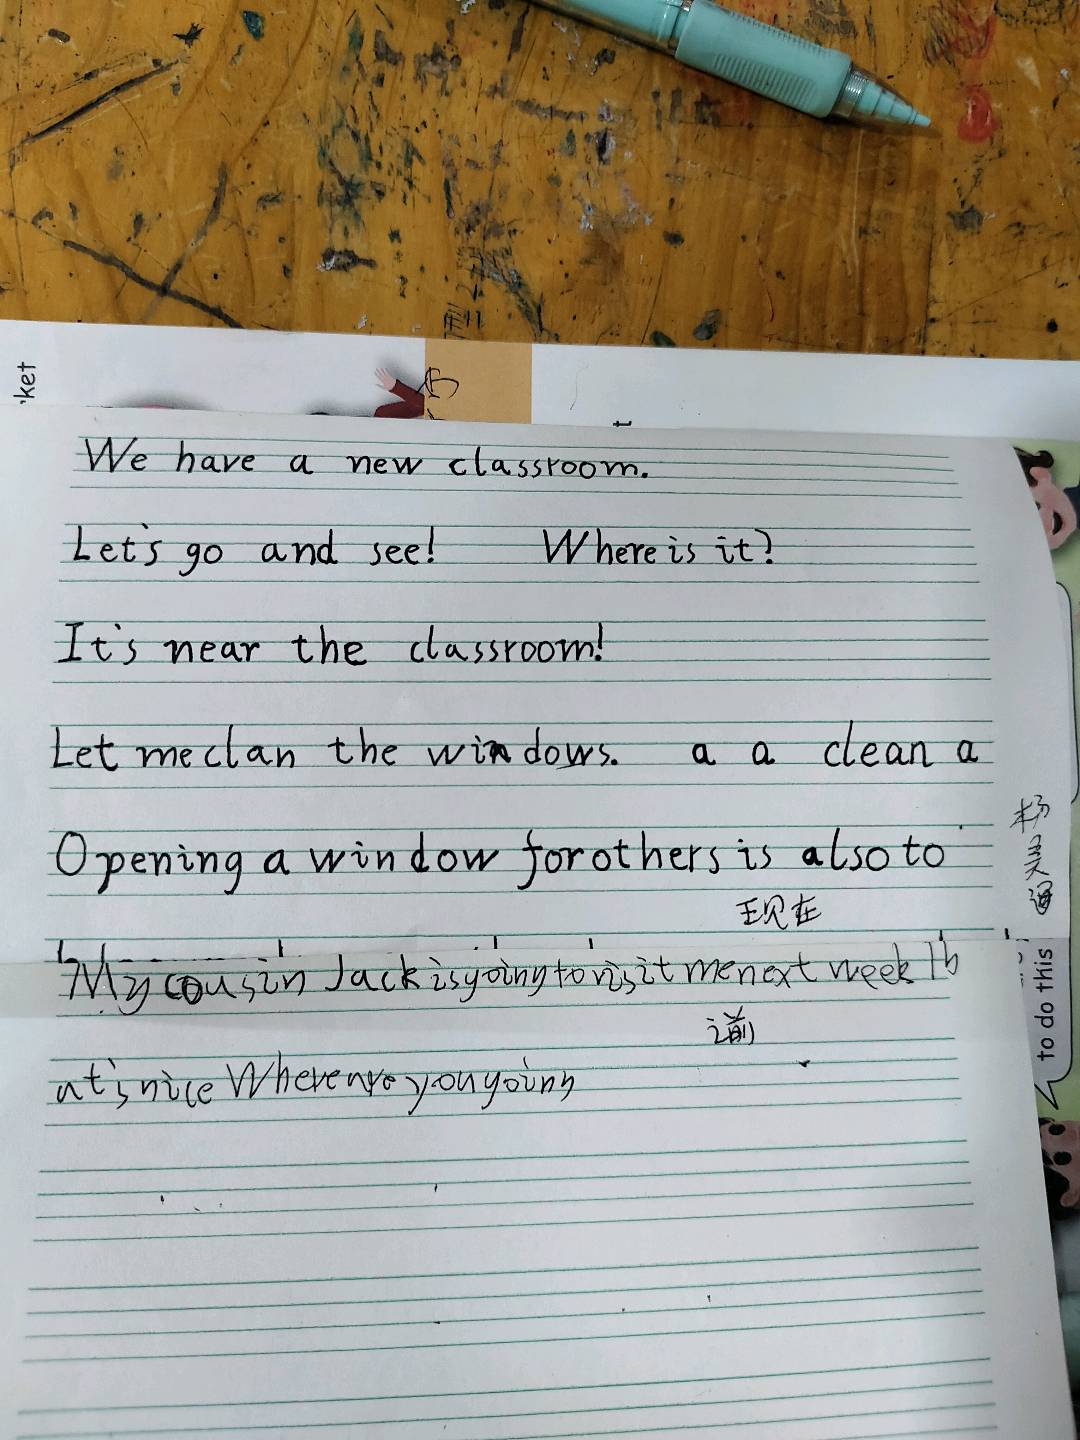 ket
We have a new classroom.
Let's go and see! Where is it?
It's near the classroom!
Let me clan the windows. a a clean a
Opening a window for others is also to
现在
My cousin Jack is going to visit me next week
之前
at's nice Where are you going
杨
to do this